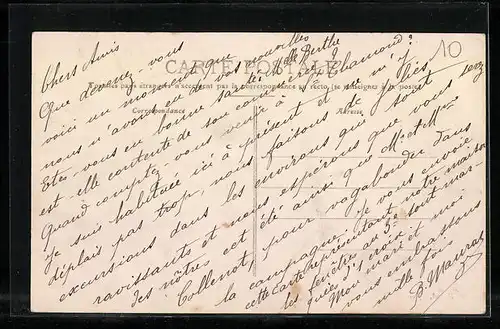 CARTE POSTALE
Tous les pays étrangers n'acceptent pas la correspondance au recto, (se renseigner à la poste)
Correspondance
Adresse
10
Chers Amis
Que devenez-vous
voici un moment que
nous n'avons eu de vos nouvelles
Êtes-vous en bonne santé Melle Berthe
est-elle contente de son commerce?
Quand comptez-vous venir à Chamond?
Je suis habituée ici à présent et ne m'y
déplais pas trop, nous faisons de jolies
excursions dans les environs qui sont
ravissants et nous espérons que vous serez
des nôtres cet été ainsi que Mr et Mme
Collenot, pour vagabonder dans
la campagne. Je vous envoie
cette carte représentant notre maison
les fenêtres au 3e sont mar-
quées d'1 croix.
Mon mari et moi
vous embrassons
mille fois
B. Mauras